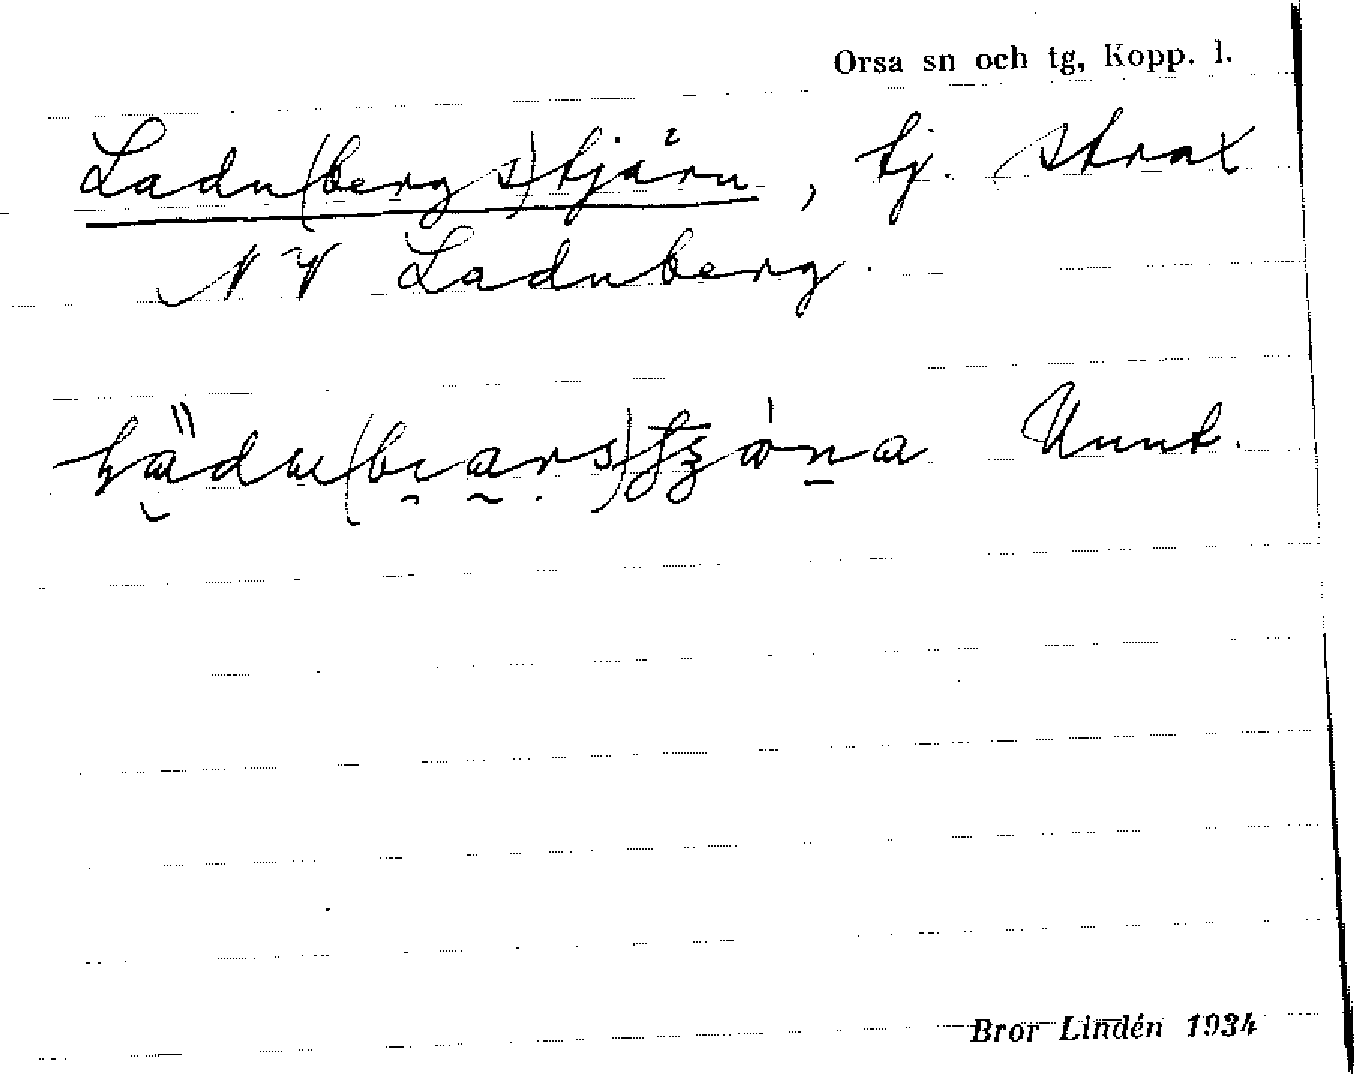 Orsa sn och tg, Kopp. l.
Ladu(bergs)tjärn, tj. strax
NV Laduberg.
Unnt.
Bror Lindén 1934